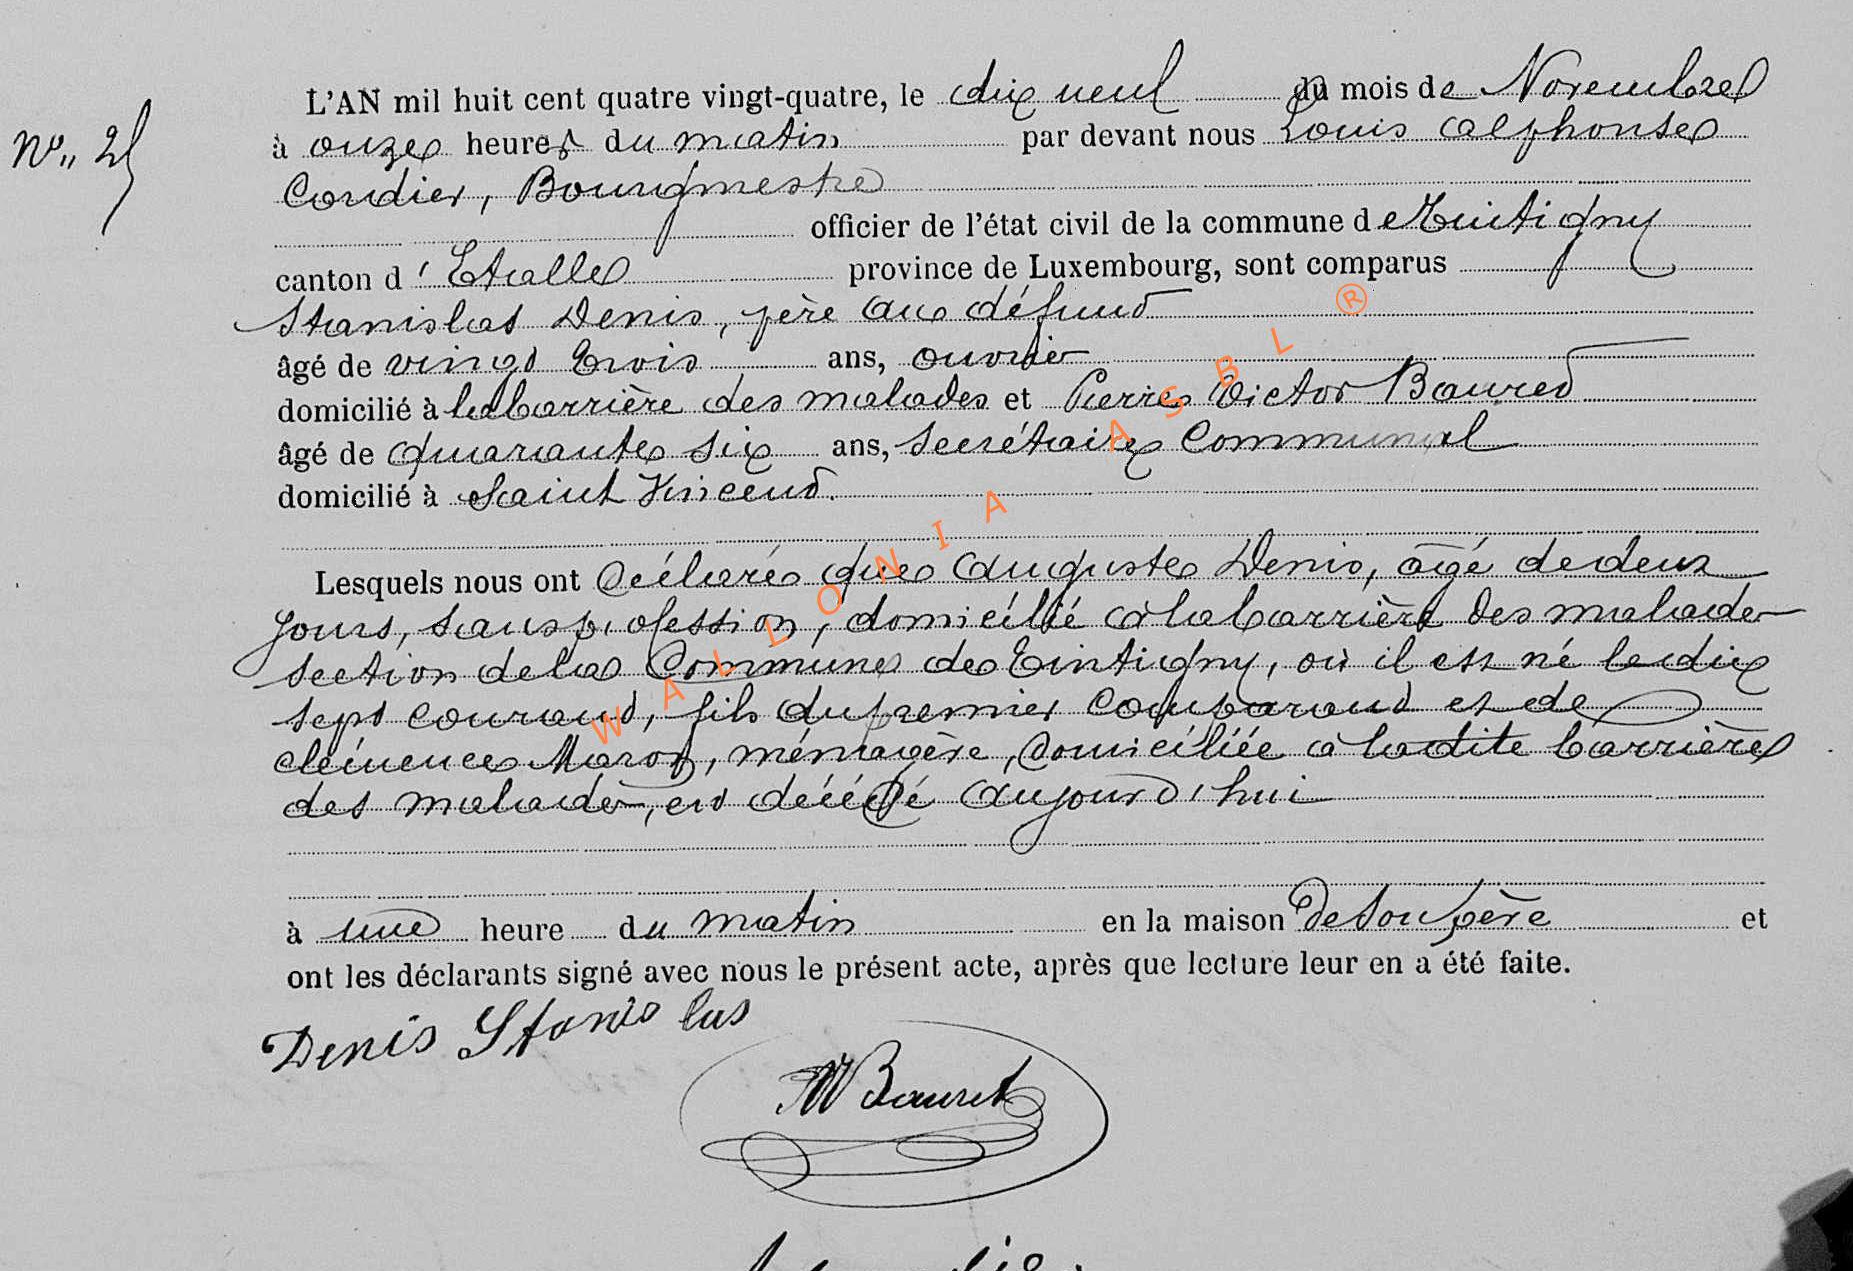 L'AN mil huit cent quatre vingt-quatre, le dix neuf du mois de Novembre
N° 25 à onze heures du matin par devant nous Louis Alphonse
Cordier, Bourgmestre
officier de l'état civil de la commune de Tintigny
canton d'Etalle province de Luxembourg, sont comparus
Stanislas Denis, père au défunt
âgé de vingt trois ans, ouvrier
domicilié à la barrière des malades et Pierre Victor Bauret
âgé de quarante six ans, secrétaire Communal
domicilié à Saint Vincent.
Lesquels nous ont déclaré que Auguste Denis, âgé de deux
jours, sans profession, domicilié à la barrière des malades
section de la Commune de Tintigny, où il est né le dix
sept courant, fils du premier comparant et de
Clémence Marot, ménagère, domiciliée à ladite barrière
des malades, est décédé aujourd'hui
à une heure du matin en la maison de son père et
ont les déclarants signé avec nous le présent acte, après que lecture leur en a été faite.
Denis Stanislas
Bauret
WALLONIA ASBL ®